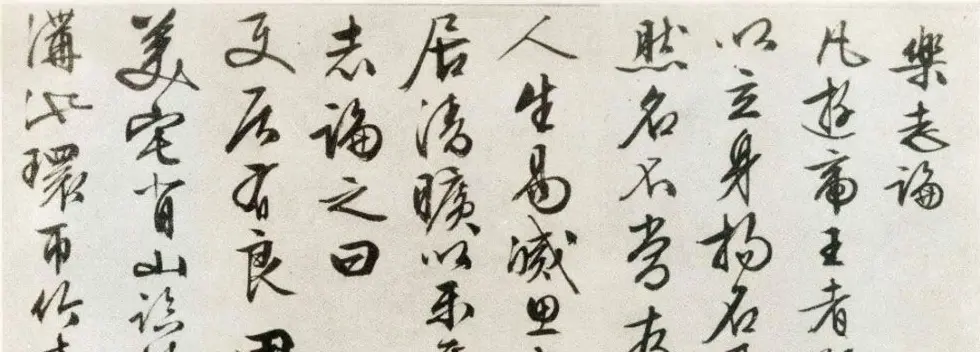 樂志論
凡遊帝王者
以立身揚名
然名不常存
人生易滅思
居清曠以樂
志論之曰
使居有良田
美宅背山臨
溝池環帀竹木